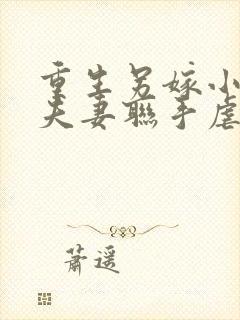 重生另嫁小
夫妻聯手虐
蕭遥